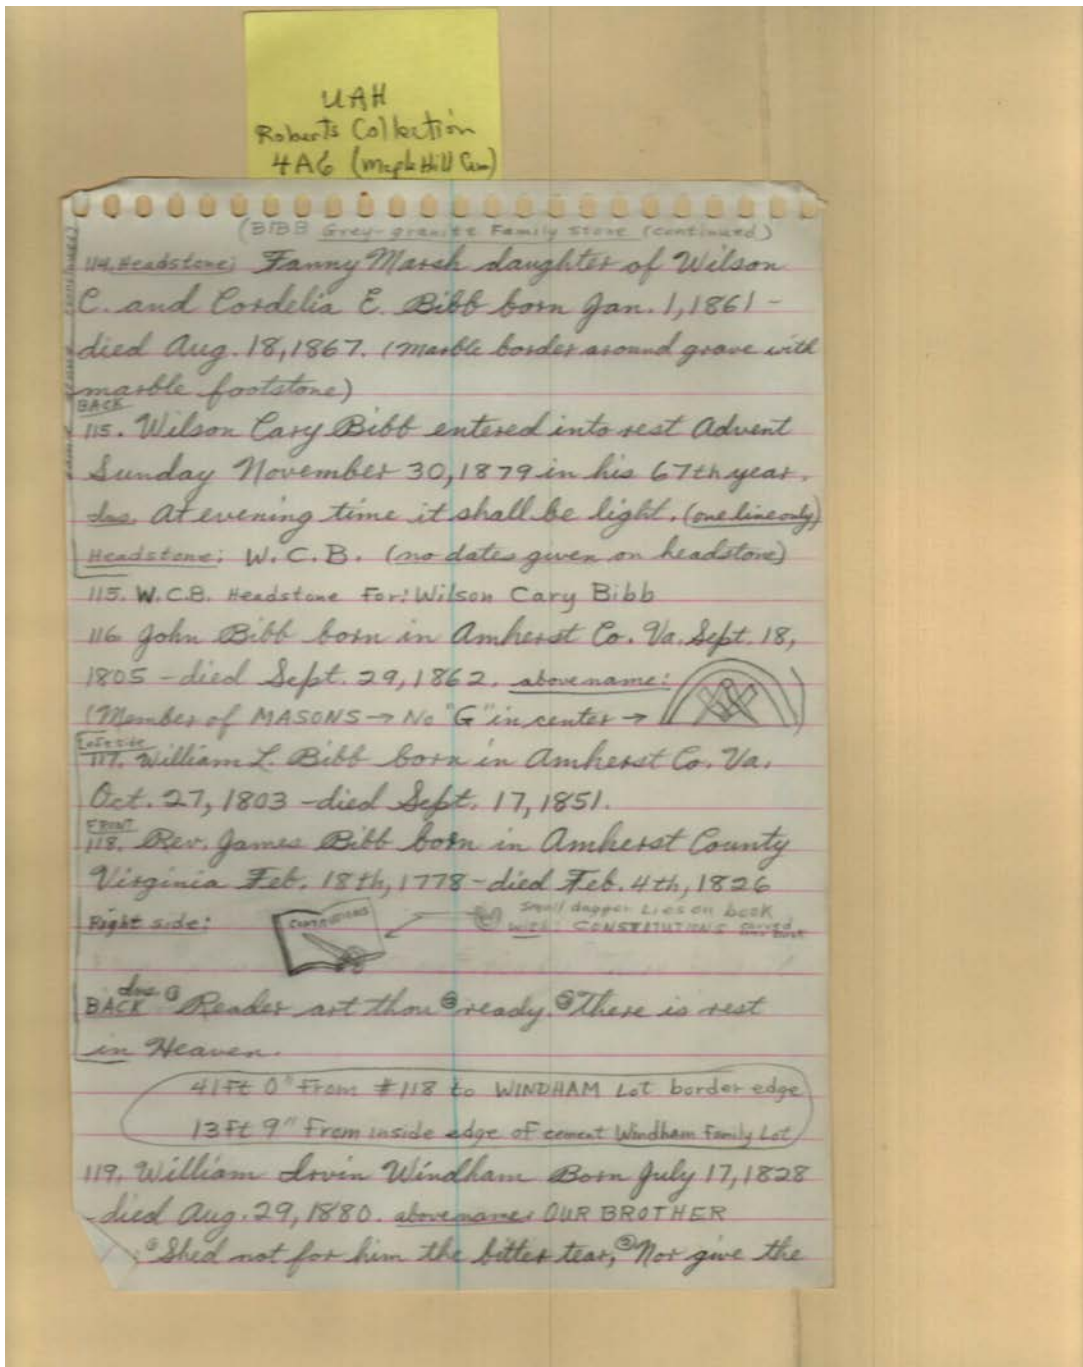 UAH
Roberts Collection
4A6 (Maple Hill Cem)
(BIBB Grey-granite Family Stone (continued)
114. Headstone: Fanny Marsh daughter of Wilson
C. and Cordelia E. Bibb born Jan. 1, 1861 -
died Aug. 18, 1867. (Marble border around grave with
marble footstone)
BACK
115. Wilson Cary Bibb entered into rest Advent
Sunday November 30, 1879 in his 67th year.
dns. At evening time it shall be light. (one line only)
Headstone: W.C.B. (no dates given on headstone)
115. W.C.B. Headstone For: Wilson Cary Bibb
116. John Bibb born in Amherst Co. Va. Sept. 18,
1805 - died Sept. 29, 1862. above name:
(Member of MASONS → No "G" in center →
Left side
117. William L. Bibb born in Amherst Co. Va.
Oct. 27, 1803 - died Sept. 17, 1851.
FRONT
118. Rev. James Bibb born in Amherst County
Virginia Feb. 18th, 1778 - died Feb. 4th, 1826
Right side: CONSTITUTIONS small dagger Lies on book
with CONSTITUTIONS carved
BACK dns. ① Reader art thou ② ready. ③ There is rest
in Heaven.
41 Ft 0" From #118 to WINDHAM Lot border edge
13 Ft 9" From inside edge of cement Windham Family Lot
119. William Irvin Windham Born July 17, 1828
- died Aug. 29, 1880. above name: OUR BROTHER
① Shed not for him the bitter tear, ② Nor give the